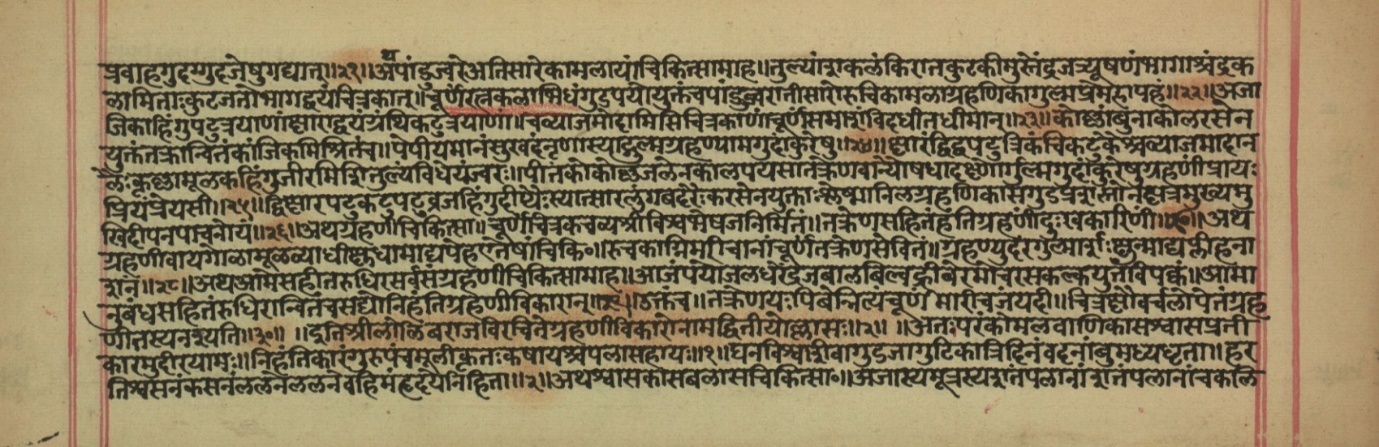 प्रवाहगुदग्गुदजेषुगद्यात्॥२१॥अथपांडुज्वरेअतिसारेकामलायांचिकित्सामाह॥तुल्यांशकलंकिरातकुटकीमुस्तेंद्रजत्र्यूषणंभागाश्चंद्रक
लामिताःकुटजतोभागद्वयंचित्रकात्॥चूर्णंरत्नकलाभिधंगुडपयोयुक्तंचपांडुज्वरातीसारोरुचिकामलाग्रहणिकागुल्मप्रमेहापहं॥२२॥अजा
जिकाहिंगुपटुत्रयाणांक्षारद्वयग्रंथिकटुत्रयाणां॥चव्याजमोदामिसिचित्रकाणांचूर्णंसमांशंविदधीतधीमान्॥२३॥कोष्णांबुनाकोलरसेन
युक्तंतक्रान्वितंकांजिकमिश्रितंच॥पेपीयमानंसुखदंनृणांस्याद्गुल्मग्रहण्यामगुदांकुरेषु॥२४॥क्षारद्विद्वपटुत्रिकंचिकटुकेश्चव्याजमोदान
लैःकृष्णामूलकहिंगुजीरमिशितुल्यंविधेयंज्वरः॥पीतंकोकोष्णजलेनकोलपयसातक्रेणवान्योषधादर्शोगुल्मगुदांकुरेषुग्रहणीप्रायः
प्रियंश्रेयसी॥२५॥द्विक्षारपटुकटुपटुव्रजहिंगुदीप्यैःस्यात्सारलुंगबदरैःकरसेनयुक्ताश्लेष्मानिलग्रहणिकार्सगुडप्रशस्तोनेहात्रमुख्यमु
खिदीपनपाचनोयं॥२६॥अथग्रहणीचिकित्सा॥चूर्णंचित्रकचव्यश्रीविश्वभेषजनिर्मितं॥तक्रेणसहितंहंतिग्रहणींदुःखकारिणीं॥२७॥अथ
ग्रहणीवायगोळामूळव्याधीष्लिधामांद्यपहएतेषांचिकि॰॥रुचकाग्निमरिचानांचूर्णंतक्रेणसेवितं॥ग्रहण्युदरगुल्मार्शःक्षुन्मांद्यप्लीहना
शनं॥२८॥अथआमसहीतरुधिरसर्वसंग्रहणीचिकित्सामाह॥आजंपयोजलधरेंद्रजबालबिल्वह्रीबेरमोचरसकल्कयुतंविपक्वं॥आमा
नुबंधसहितंरुधिरान्वितंचसद्योनिहंतिग्रहणीविकारान्॥२९॥उक्तंच॥तक्रेणयःपिबेन्नित्यंचूर्णंमारीचजंयदी॥चित्रसौवर्चलोपेतंग्रह
णीतस्यनश्यति॥३०॥ ॥इतिश्रीलोळिंबराजविरचितेग्रहणीविकारोनामद्वितीयोल्लासः॥२॥ ॥अतःपरंकोमलवाणिकासश्वासप्रती
कारमुदीरयामः॥निहंतिकासंगुरुपंचमूलीकृतःकषायश्चपलासहायः॥१॥घनविश्वाशिवागुडजागुटिकात्रिदिनंवदनांबुमध्यधृता॥हर
तिश्वसनंकसनंललनेललनेवहिमंहृदयेनिहिता॥२॥अथश्वासकासबलासचिकित्सा॰॥अजास्यमूत्रस्यशतंपलानांशतंपलानांचकलि